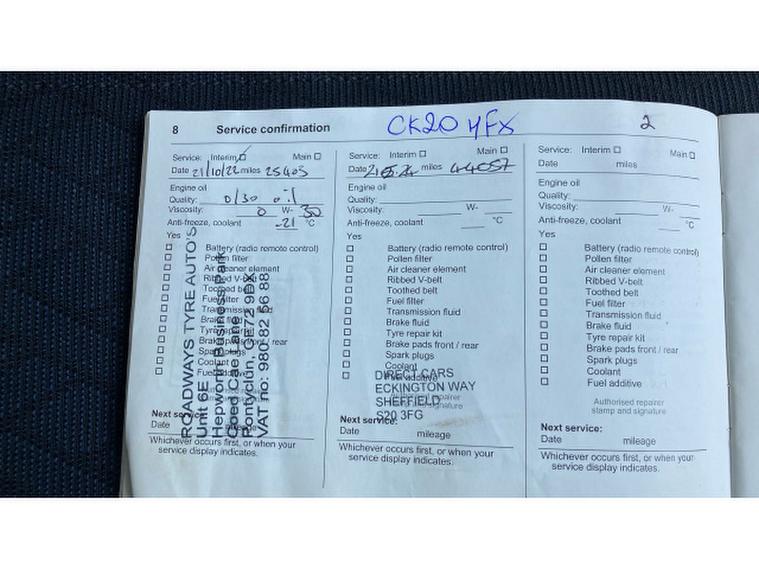 8 Service confirmation CK20 YFX 2
Service: Interim Main
Date 21/10/22 miles 25403
Engine oil
Quality: 0/30 oil
Viscosity: 0 W- 30
Anti-freeze, coolant -21 °C
Yes
Battery (radio remote control)
Pollen filter
Air cleaner element
Ribbed V-belt
Toothed belt
Fuel filter
Transmission fluid
Brake fluid
Tyre repair kit
Brake pads front / rear
Spark plugs
Coolant
Fuel additive
ROADWAYS TYRE AUTO'S
Unit 6E
Tepworth Business Park
Coed Cae Lane
Pontyclun, CF72 9DX
VAT no: 980 82 56 88
Next service:
Date mileage
Whichever occurs first, or when your
service display indicates.
Service: Interim Main
Date 21.05.24 miles 44057
Engine oil
Quality:
Viscosity: W-
Anti-freeze, coolant °C
Yes
Battery (radio remote control)
Pollen filter
Air cleaner element
Ribbed V-belt
Toothed belt
Fuel filter
Transmission fluid
Brake fluid
Tyre repair kit
Brake pads front / rear
Spark plugs
Coolant
Fuel additive
DIRECT CARS
ECKINGTON WAY
SHEFFIELD
S20 3FG
repairer
signature
Next service:
Date mileage
Whichever occurs first, or when your
service display indicates.
Service: Interim Main
Date miles
Engine oil
Quality:
Viscosity: W-
Anti-freeze, coolant °C
Yes
Battery (radio remote control)
Pollen filter
Air cleaner element
Ribbed V-belt
Toothed belt
Fuel filter
Transmission fluid
Brake fluid
Tyre repair kit
Brake pads front / rear
Spark plugs
Coolant
Fuel additive
Authorised repairer
stamp and signature
Next service:
Date mileage
Whichever occurs first, or when your
service display indicates.